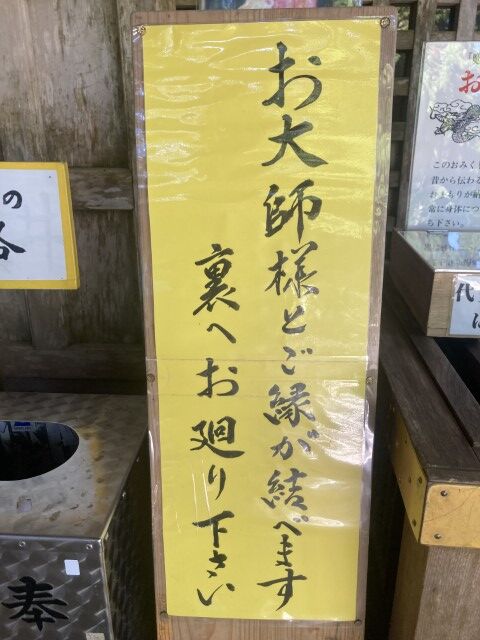 お大師様とご縁が結べます
裏へお廻り下さい
の
お
このおみく
昔から伝わる
おまもりが
常に身体につ
ち下さい。
代
奉